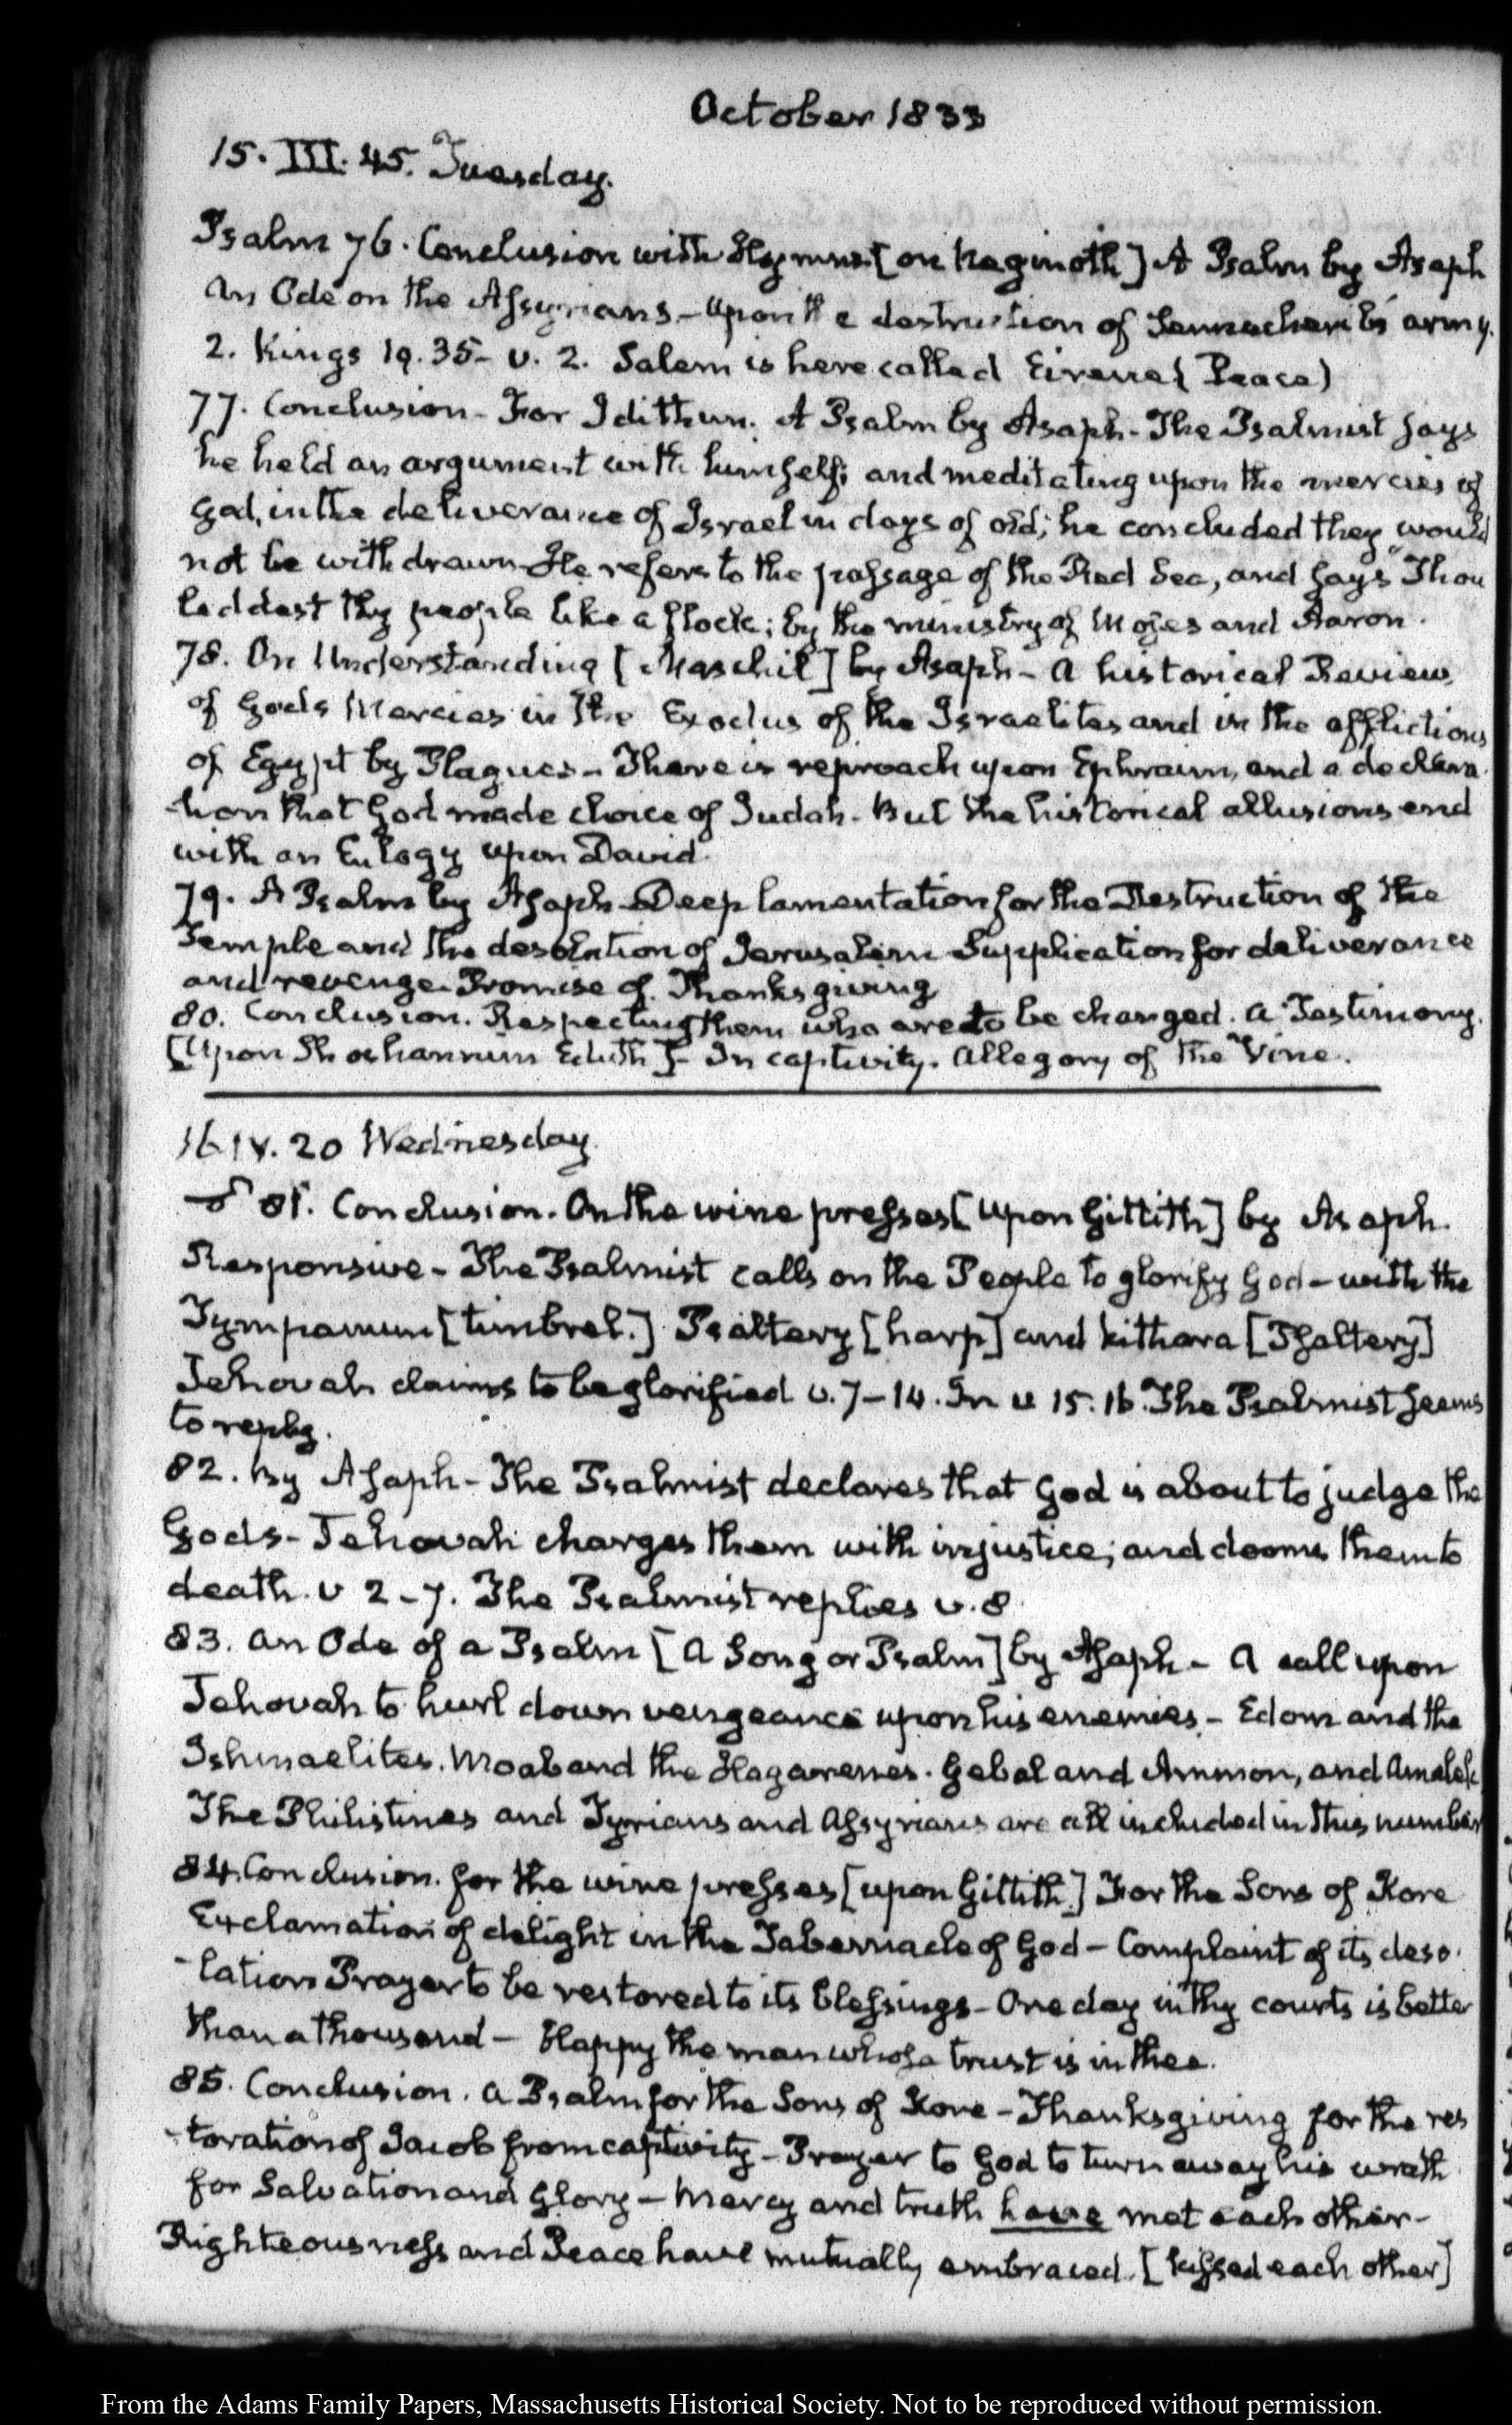 October 1833
15. III. 45. Tuesday.
Psalm 76. Conclusion with Hymns [on Neginoth] A Psalm by Asaph
An Ode on the Assyrians - Upon the destruction of Sennacherib's army.
2. Kings 19. 35 - v. 2. Salem is here called Eirene (Peace)
77. Conclusion - For Idithun. A Psalm by Asaph - The Psalmist says
he held an argument with himself; and meditating upon the mercies of
God, in the deliverance of Israel in days of old; he concluded they would
not be withdrawn - He refers to the passage of the Red Sea, and says "Thou
leddest thy people like a flock; by the ministry of Moses and Aaron.
78. On Understanding [Maschil] by Asaph - A historical Review,
of Gods Mercies in the Exodus of the Israelites and in the afflictions
of Egypt by Plagues - There is reproach upon Ephraim, and a declara-
tion that God made choice of Judah. But the historical allusions end
with an Eulogy upon David.
79. A Psalm by Asaph - Deep lamentation for the Destruction of the
Temple and the desolation of Jerusalem - Supplication for deliverance
and revenge - Promise of Thanksgiving
80. Conclusion. Respecting them who are to be changed. A Testimony.
[Upon Shoshannim Eduth] - In captivity. Allegory of the Vine.
16. IV. 20 Wednesday.
81. Conclusion. On the wine presses [Upon Gittith] by Asaph.
Responsive - The Psalmist calls on the People to glorify God - with the
Tympanum [timbrel.] Psaltery [harp] and kithara [Psaltery]
Jehovah claims to be glorified v. 7-14. In v 15. 16. The Psalmist seems
to reply.
82. By Asaph - The Psalmist declares that God is about to judge the
Gods - Jehovah charges them with injustice; and dooms them to
death. v 2-7. The Psalmist replies v. 8
83. An Ode of a Psalm [A Song or Psalm] by Asaph - A call upon
Jehovah to hurl down vengeance upon his enemies - Edom and the
Ishmaelites. Moab and the Hagarenes. Gebal and Ammon, and Amalek
The Philistines and Tyrians and Assyrians are all included in this number
84. Conclusion. for the wine presses [upon Gittith.] For the Sons of Kore
Exclamation of delight in the Tabernacle of God - Complaint of its deso-
-lation Prayer to be restored to its blessings - One day in thy courts is better
than a thousand - Happy the man whose trust is in thee.
85. Conclusion. A Psalm for the Sons of Kore - Thanksgiving for the res
-toration of Jacob from captivity - Prayer to God to turn away his wrath
for Salvation and Glory - Mercy and truth have met each other -
Righteousness and Peace have mutually embraced. [kissed each other]
From the Adams Family Papers, Massachusetts Historical Society. Not to be reproduced without permission.